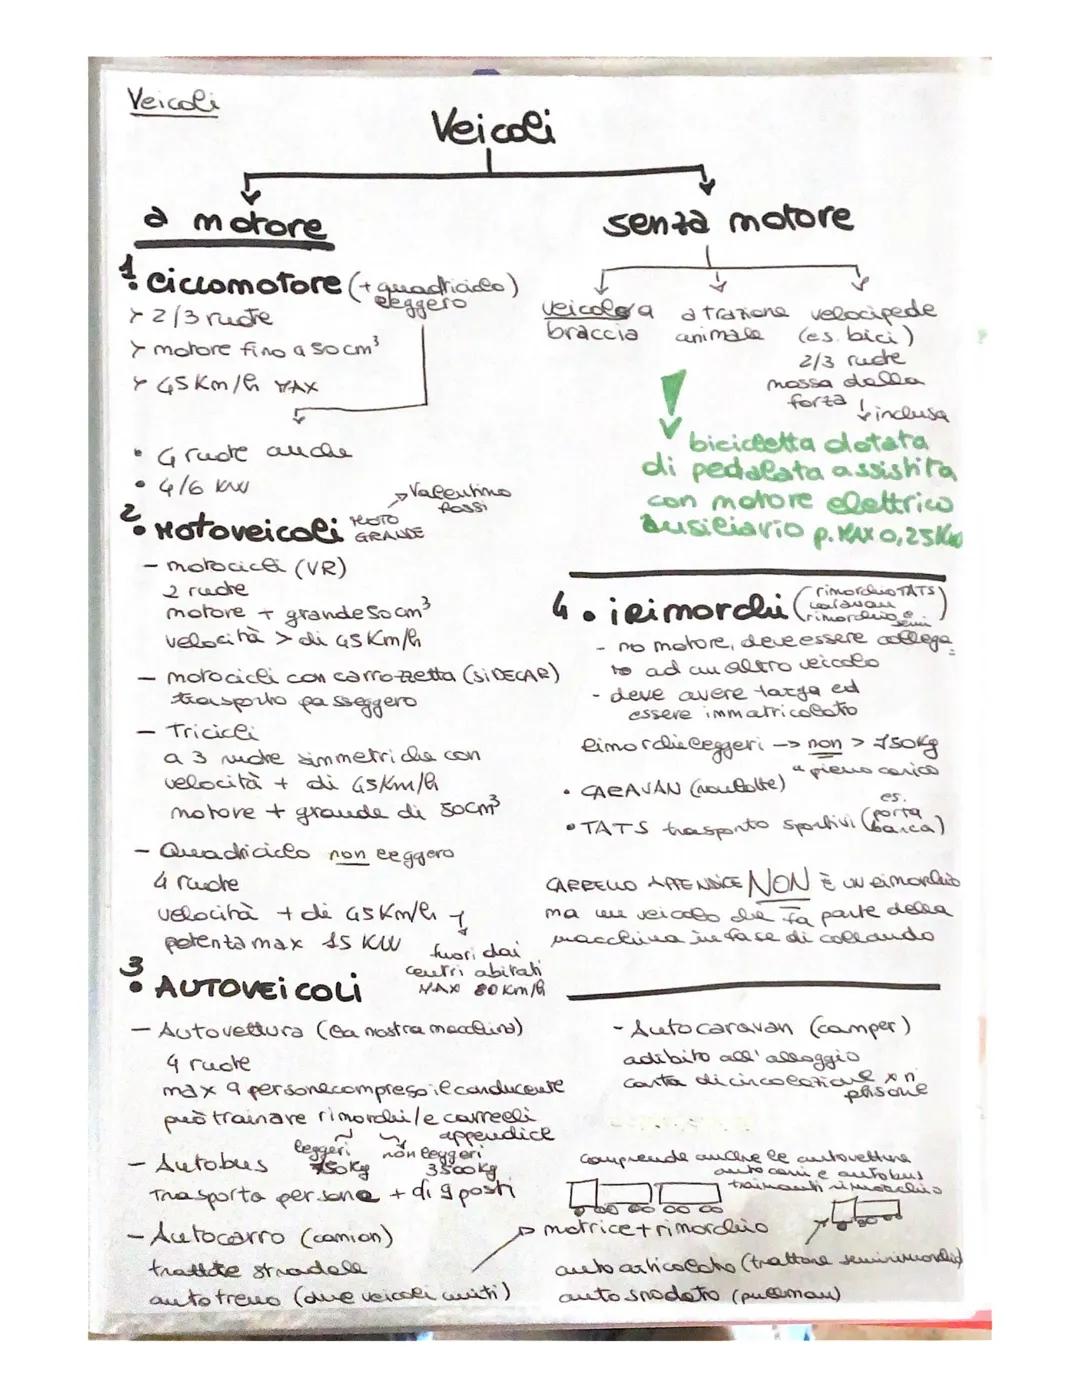 Veicoli
Veicoli
a motore
1. Ciclomotore (+ quadriciclo leggero)
> 2/3 ruote
> motore fino a 50 cm³
> 45 Km/h MAX
• 4 ruote anche
• 4/6 KW
2. Motoveicoli MOTO GRANDE
Valentino Rossi
- motocicli (VR)
2 ruote
motore + grande 50 cm³
velocità > di 45 Km/h
- motocicli con carrozzetta (SIDECAR)
trasporto passeggero
- Tricicli
a 3 ruote simmetriche con
velocità + di 45 Km/h
motore + grande di 50cm³
- Quadriciclo non leggero
4 ruote
velocità + di 45 Km/h
potenza max 15 KW
fuori dai
centri abitati
MAX 80 Km/h
3. AUTOVEICOLI
- Autovettura (la nostra macchina)
4 ruote
max 9 persone compreso il conducente
può trainare rimorchi/e carrelli
appendice
leggeri 750kg
non leggeri 3500 kg
- Autobus
Trasporta persone + di 9 posti
- Autocarro (camion)
trattore stradale
autotreno (due veicoli uniti)
senza motore
veicolo a braccia
a trazione animale
velocipede
(es. bici)
2/3 ruote
mossa dalla
forza
inclusa
! bicicletta dotata
di pedalata assistita
con motore elettrico
ausiliario p. MAX 0,25 Kw
4. i Rimorchi (rimorchio TATS
caravan
rimorchio e semi)
- no motore, deve essere collega
to ad un altro veicolo
- deve avere targa ed
essere immatricolato
Rimorchi leggeri -> non > 750kg
a pieno carico
• CARAVAN (roulotte)
• TATS trasporto sportivi (es. porta barca)
CARRELLO APPENDICE NON È UN rimorchio
ma un veicolo che fa parte della
macchina in fase di collaudo
- Autocaravan (camper)
adibito all'alloggio
carta di circolazione x n°
persone
Comprende anche le autovetture
autocarri e autobus
trainanti rimorchio
motrice + rimorchio
auto articolato (trattore semirimorchio)
auto snodato (pullman)